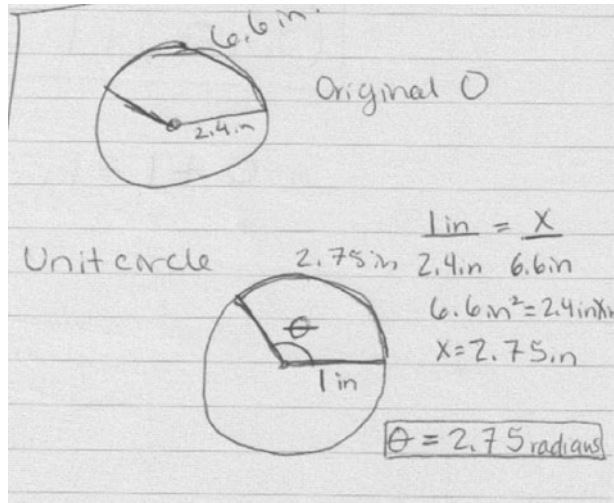 6.6 in.
2.4 in
Original O
Unit circle
2.75 in
1 in = X
2.4 in 6.6 in
6.6 in² = 2.4 in X in
X = 2.75 in
θ
1 in
θ = 2.75 radians